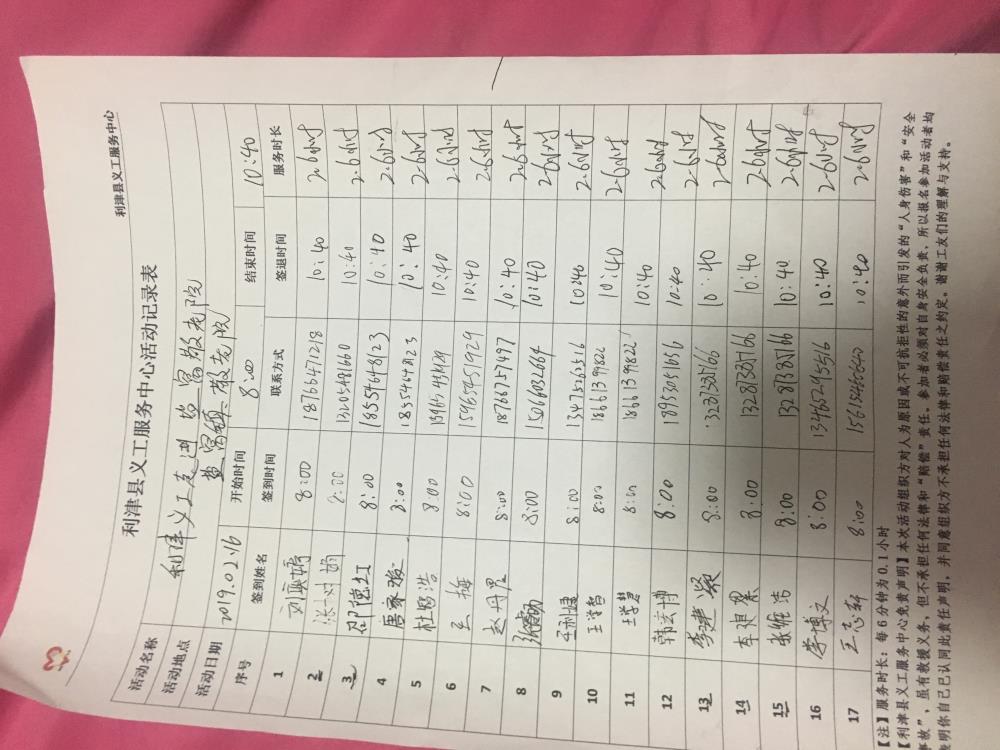 利津县义工服务中心
利津县义工服务中心活动记录表
活动名称 利津义工走进盐窝敬老院
活动地点 盐窝镇敬老院
活动日期 2019.02.16 开始时间 8:00 结束时间 10:40
序号 签到姓名 签到时间 联系方式 签退时间 服务时长
1 8:00 18766471218 10:40 2.6小时
2 8:00 13205481660 10:40 2.6小时
3 8:00 18554648123 10:40 2.6小时
4 8:00 18554648123 10:40 2.6小时
5 杜鹏浩 8:00 10:40 2.6小时
6 王梅 8:00 15965451929 10:40 2.6小时
7 8:00 18766727497 10:40 2.6小时
8 8:00 15066032664 10:40 2.6小时
9 8:00 13475262516 10:40 2.6小时
10 王学智 8:00 18661399822 10:40 2.6小时
11 王学慧 8:00 18661399822 10:40 2.6小时
12 韩宏博 8:00 18953051656 10:40 2.6小时
13 李建 8:00 10:40 2.6小时
14 8:00 13287385766 10:40 2.6小时
15 8:00 13287385766 10:40 2.6小时
16 李博文 8:00 13465295516 10:40 2.6小时
17 8:00 10:40 2.6小时
【注】服务时长：每6分钟为0.1小时
【利津县义工服务中心免责声明】本次活动组织方对人为原因或不可抗拒性的意外而引发的“人身伤害”和“安全
故”，虽有救援义务，但不承担任何法律和“赔偿”责任。参加者必须对自身安全负责，所以报名参加活动者均
表明你自己已认同此责任声明，并同意组织方不承担任何法律和赔偿责任之约定。谢谢工友们的理解与支持。